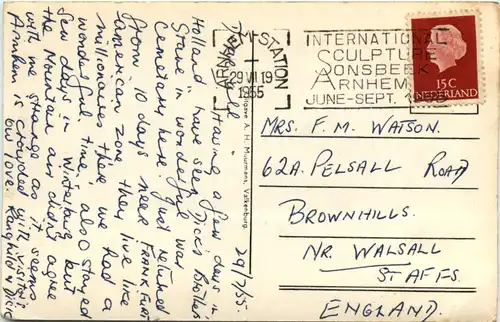 29/7/55.
Having a few days in
Holland have seen Dick's Brothers
Stone in wonderful war
Cemetary here. Just returned
from 10 days near FRANKFURT
american zone, they live like
millionaires there, we had a
wonderful time, also stayed
few days in Winterburg but
the Mountain air didn't agree
with me strange as it seems
Arnhem is crowded with visitors
our love. Ranghild & Dick
Uitgave A. H. Muurmans, Valkenburg.
ARNHEM-STATION
29 VII 19
1955
INTERNATIONAL
SCULPTURE
SONSBEEK
ARNHEM
JUNE-SEPT.
15C
NEDERLAND
MRS. F. M. WATSON.
62A. PELSALL ROAD
BROWNHILLS.
NR. WALSALL
STAFFS.
ENGLAND.